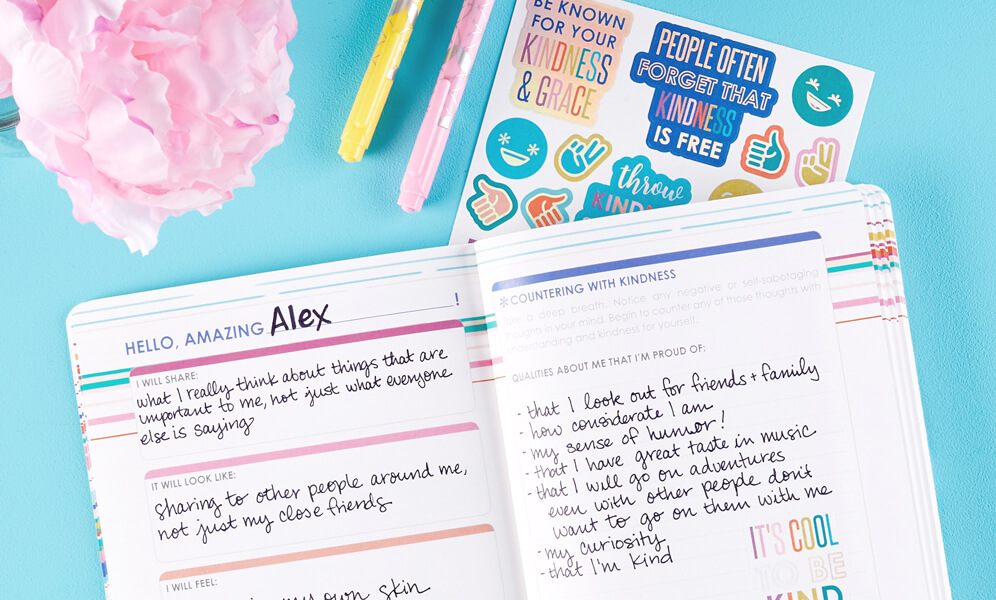 BE KNOWN
FOR YOUR
KINDNESS
& GRACE
PEOPLE OFTEN
FORGET THAT
KINDNESS
IS FREE
throw
HELLO, AMAZING Alex!
I WILL SHARE:
what I really think about things that are
important to me, not just what everyone
else is saying
IT WILL LOOK LIKE:
sharing to other people around me,
not just my close friends
I WILL FEEL:
my own skin
*COUNTERING WITH KINDNESS
a deep breath. Notice any negative or self-sabotaging
thoughts in your mind. Begin to counter any of those thoughts with
understanding and kindness for yourself.
QUALITIES ABOUT ME THAT I'M PROUD OF:
- that I look out for friends + family
- how considerate I am
- my sense of humor!
- that I have great taste in music
- that I will go on adventures
even with other people don't
want to go on them with me
- my curiosity
- that I'm kind
IT'S COOL
TO BE
KIND